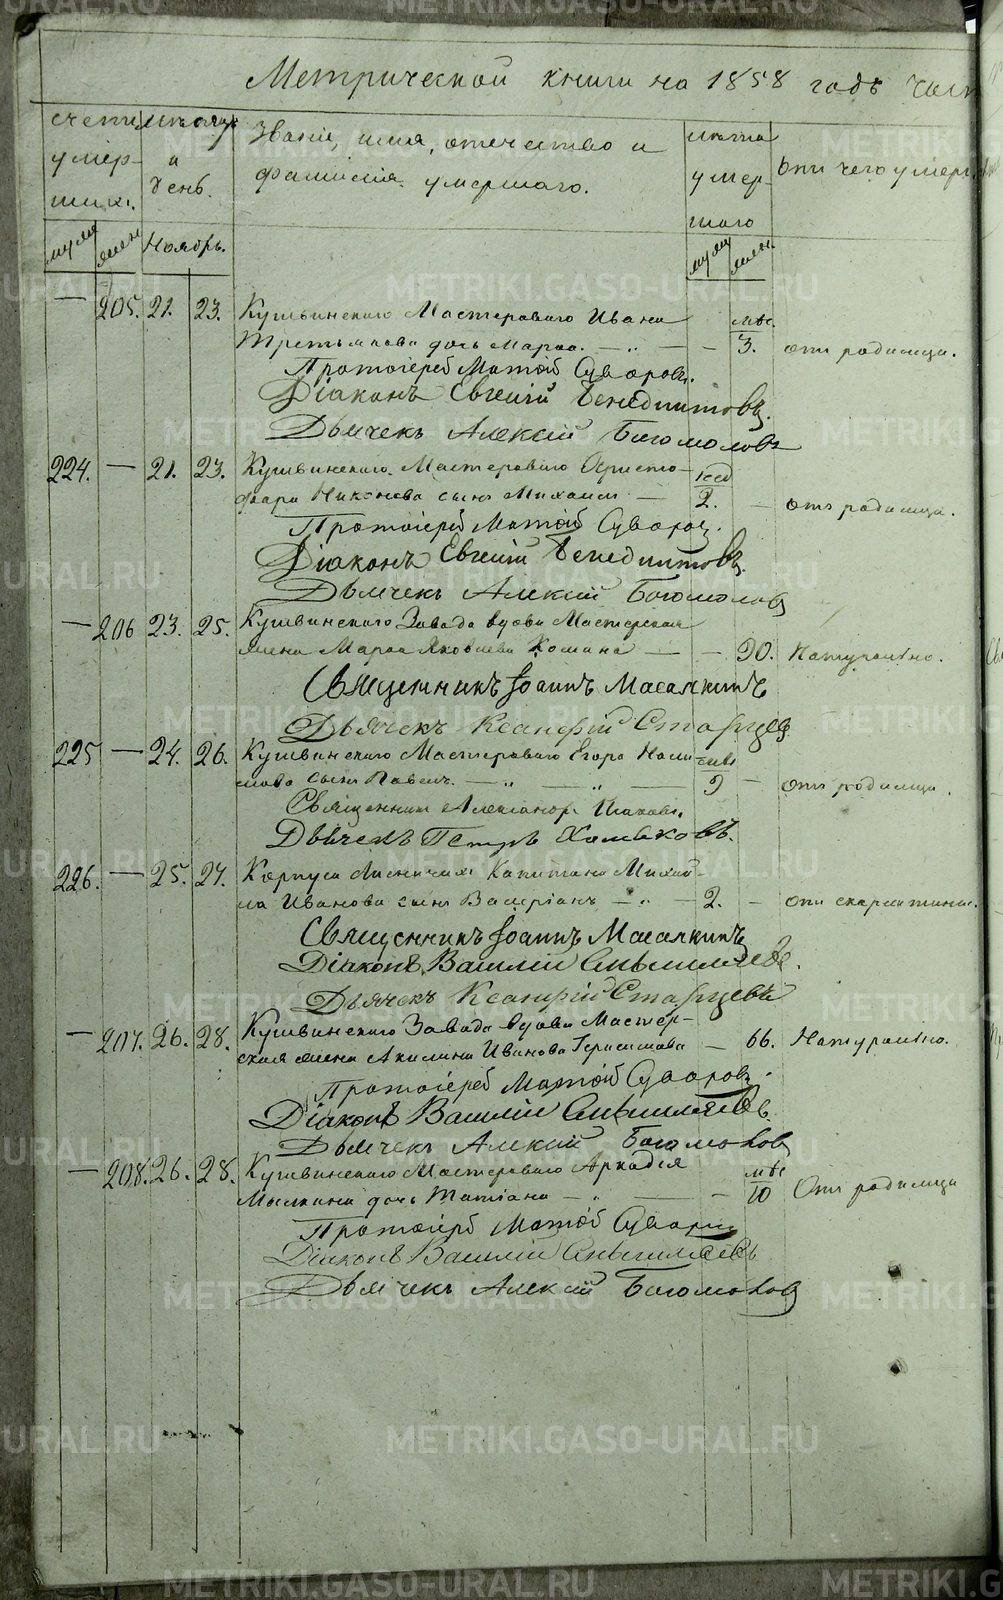 Метрической книги на 1858 годъ
счетъ умер- ших. мѣсяцъ и день. Званіе, имя, отчество и фамилія умершаго. лѣта умер- шаго отъ чего умеръ
муж жен Ноябрь. муж жен.
— 205. 21. 23. Кушвинскаго Мастероваго Ивана мѣс.
Третьякова дочь Марѳа. — „ — — 3. отъ родимца.
Протоіерей Матѳій Суворовъ.
Діаконъ Евгеній Бенедиктовъ.
Дьячекъ Алексій Богомоловъ
224. — 21. 23. Кушвинскаго Мастероваго Христо- нед
фора Никонова сынъ Михаилъ — 2. — отъ родимца.
Протоіерей Матѳій Суворовъ.
Діаконъ Евгеній Бенедиктовъ.
Дьячекъ Алексій Богомоловъ
— 206 23. 25. Кушвинскаго Завода вдова Мастерская
жена Марѳа Яковлева — — 90. Натурально.
Священникъ Іоаннъ Масалкинъ
Дьячекъ Ксанфій Старцевъ
225 — 24. 26. Кушвинскаго Мастероваго Егора
сынъ Павелъ. — „ — „ — 9 — отъ родимца.
Священникъ Александръ
Дьячекъ Петръ Хомяковъ.
226. — 25. 27. Корпуса Лѣсничихъ Капитана Михай-
ла Иванова сынъ Валеріанъ — „ — 2. — отъ скарлатины.
Священникъ Іоаннъ Масалкинъ
Діаконъ Василій
Дьячекъ Ксанфій Старцевъ
— 207. 26. 28. Кушвинскаго Завода вдова Мастер-
ская жена Акилина Иванова Герасимова — 66. Натурально.
Протоіерей Матѳій Суворовъ.
Діаконъ Василій
Дьячекъ Алексій Богомоловъ
— 208. 26. 28. Кушвинскаго Мастероваго Аркадія мѣс
дочь Татіана — „ — — 10 Отъ родимца
Протоіерей Матѳій Суворовъ
Діаконъ Василій
Дьячекъ Алексій Богомоловъ
METRIKI.GASO-URAL.RU